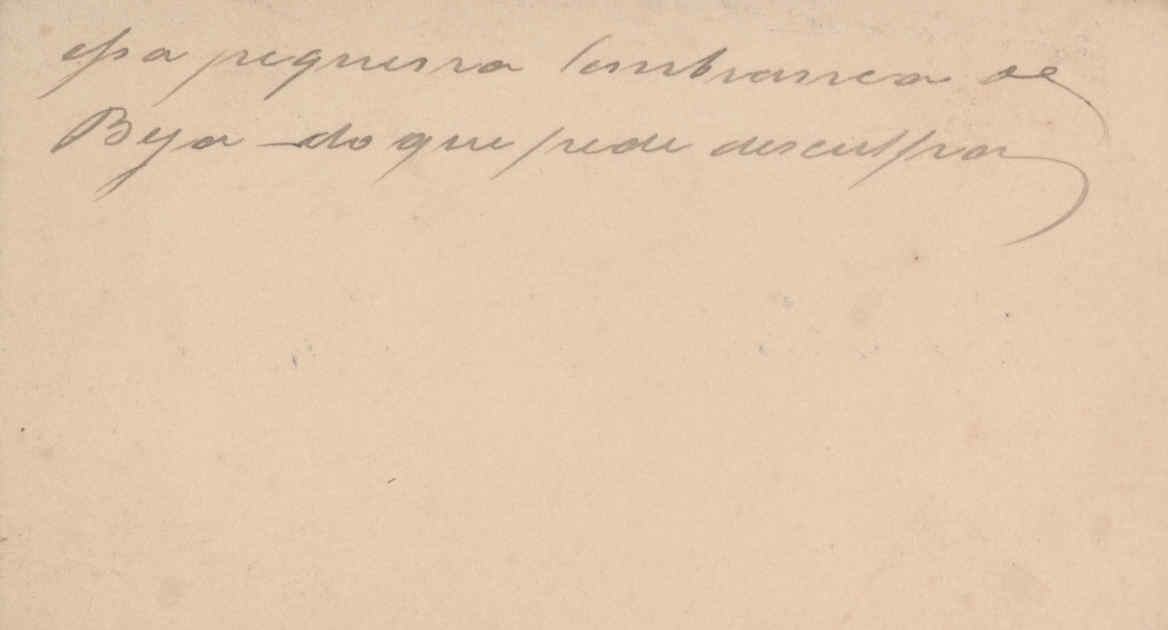 essa pequena lembranca de
Beja do que pede desculpa